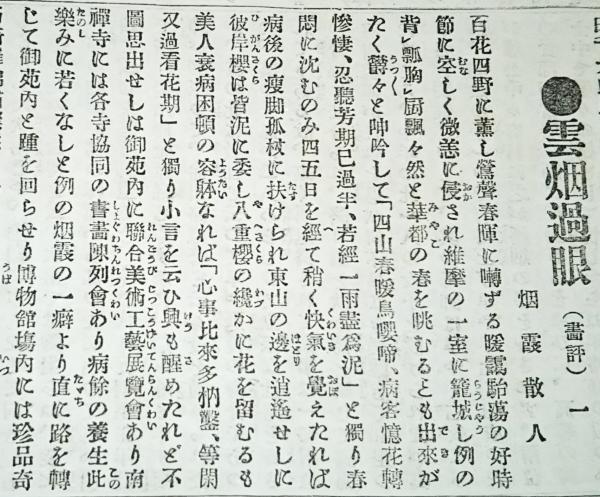 ●雲烟過眼（書評）一
烟霞散人
百花四野に薫し鶯聲春暉に囀ずる暖靄駘蕩の好時
節に空しく微恙に侵され維摩の一室に籠城し例の
背」瓢胸」厨飄々然と華都の春を眺むるとも出來が
たく欝々と呻吟して「四山春暖鳥嚶啼、病客憶花轉
惨悽、忍聽芳期已過半、若經一雨盡爲泥」と獨り春
悶に沈むのみ四五日を經て稍く快氣を覺えたれば
病後の瘦脚孤杖に扶けられ東山の邊を逍遙せしに
彼岸櫻は皆泥に委し八重櫻の纔かに花を留むるも
美人衰病困頓の容躰なれば「心事比來多枘鑿、等閑
又過看花期」と獨り小言を云ひ興も醒めたれど不
圖思出せしは御苑内に聯合美術工藝展覽會あり南
禪寺には各寺協同の書畫陳列會あり病餘の養生此
樂みに若くなしと例の烟霞の一癖より直に路を轉
じて御苑内と踵を回らせり博物館塲内には珍品奇